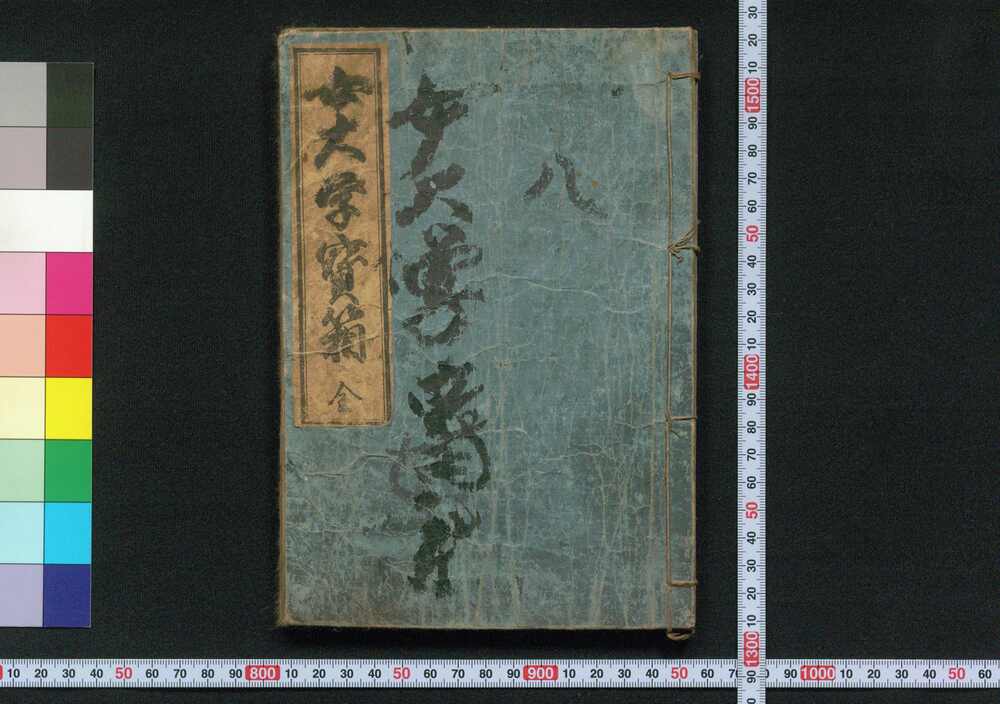 女大学寳箱
全
女大學
八
30 20 10 1500 90 80 70 60 50 40 30 20 10 1400 90 80 70 60 50 40 30 20 10 1300 90
10 20 30 40 50 60 70 80 90 800 10 20 30 40 50 60 70 80 90 900 10 20 30 40 50 60 70 90 1000 10 20 30 40 50 60